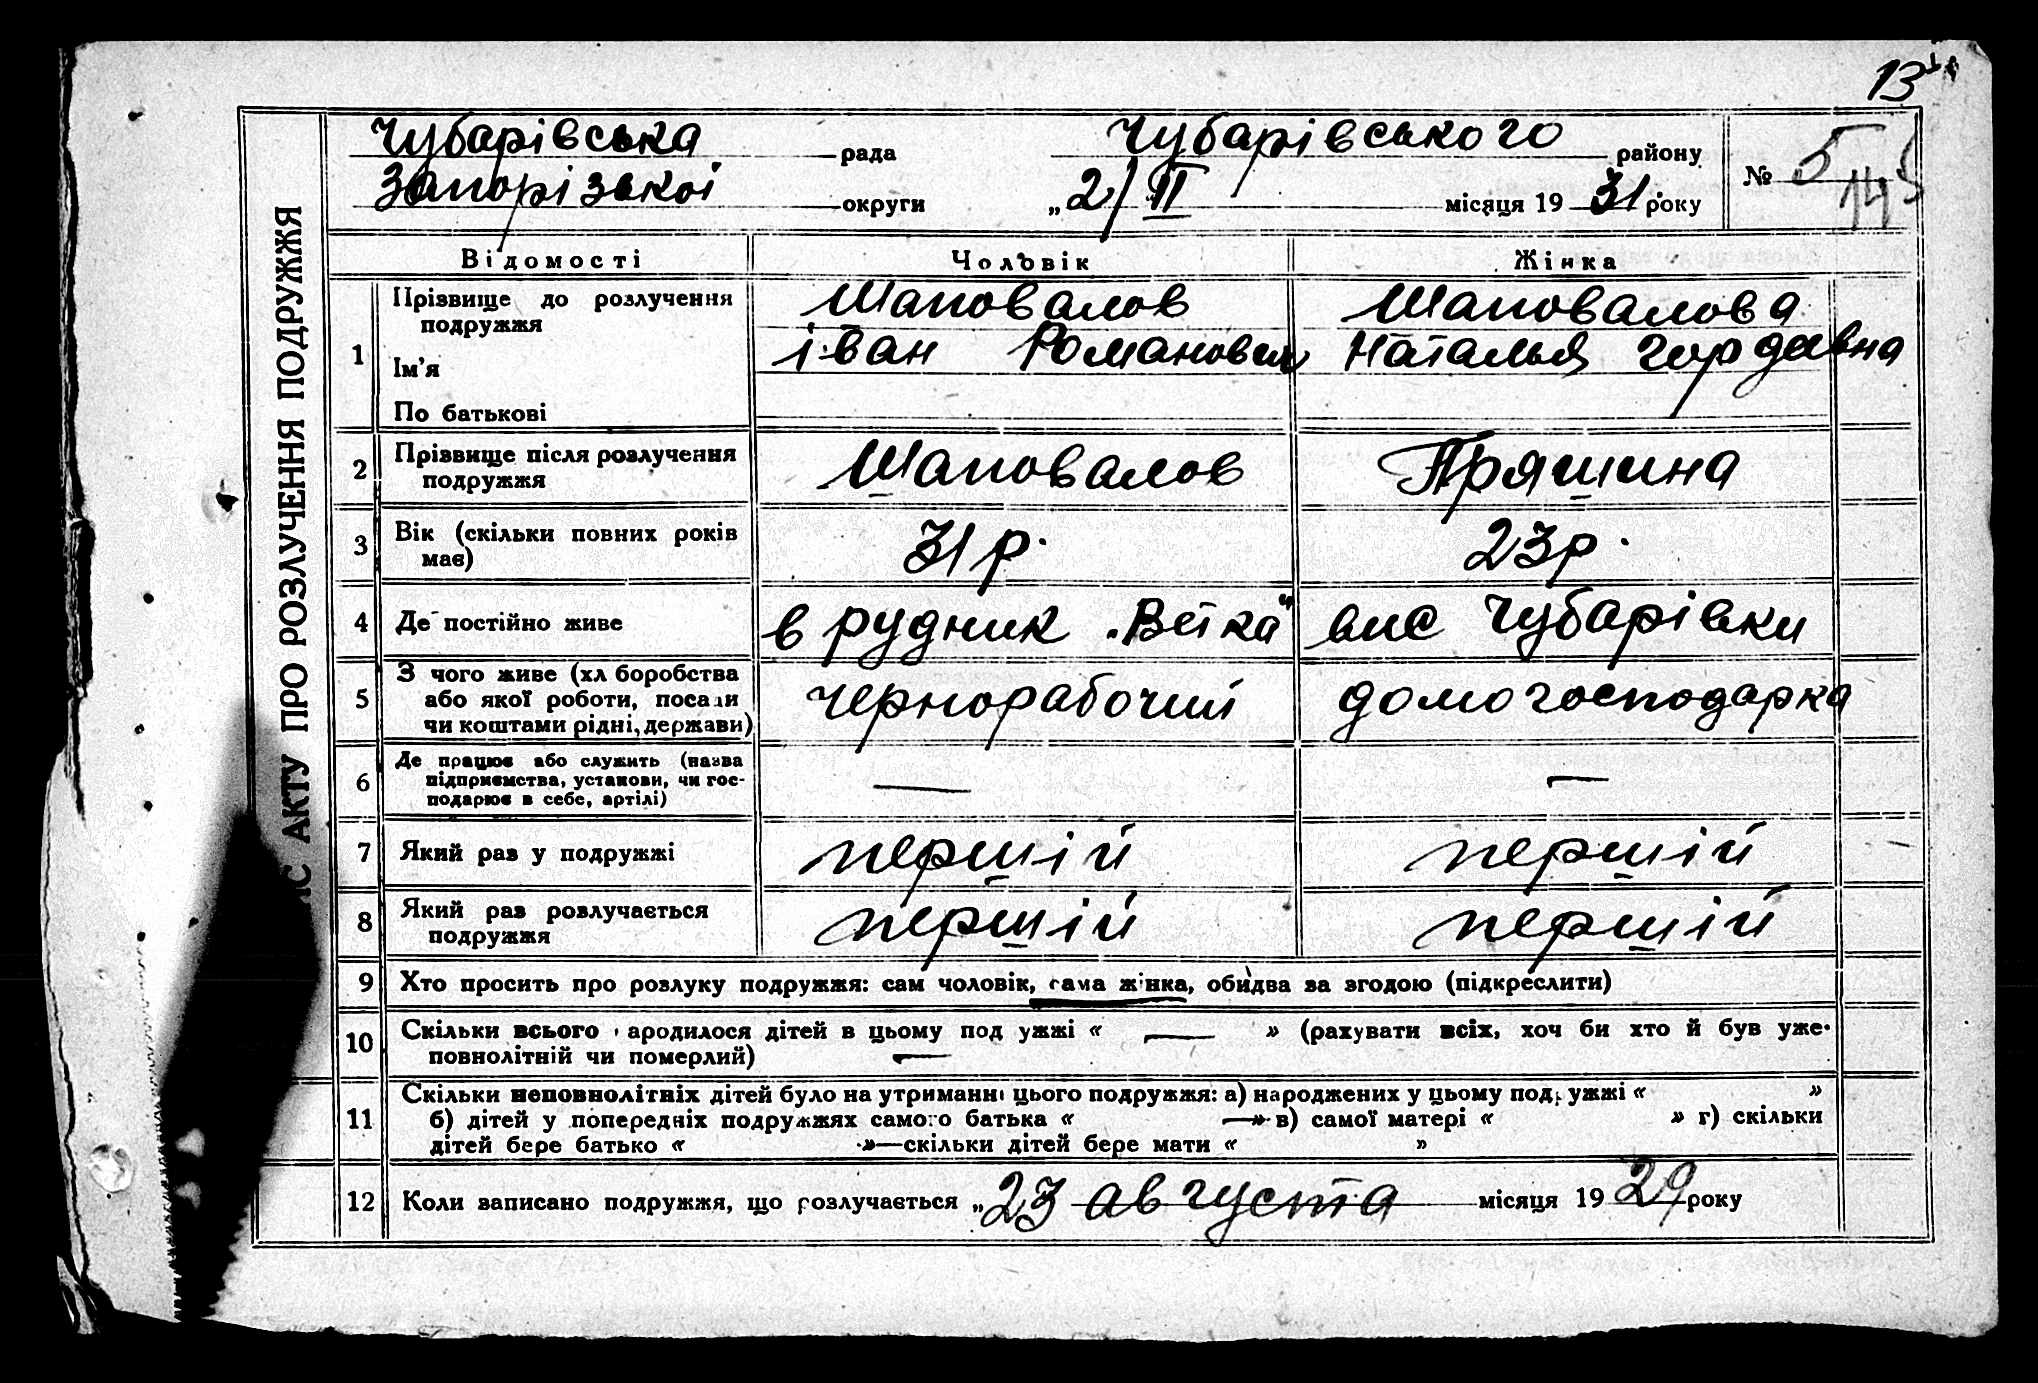 13
Чубарівська рада Чубарівського району
№ 5
Запорізької округи „2/ІІ місяця 1931 року
145
ІС АКТУ ПРО РОЗЛУЧЕННЯ ПОДРУЖЖЯ
Відомості Чоловік Жінка
1 Прізвище до розлучення подружжя Шаповалов Шаповалова
Ім'я іван Романович Наталья Гордеевна
По батькові
2 Прізвище після розлучення подружжя Шаповалов Пряшина
3 Вік (скільки повних років має) 31 р. 23 р.
4 Де постійно живе в рудник „Вєтка" вис Чубарівки
5 З чого живе (хл боробства або якої роботи, посади чи коштами рідні, держави) чернорабочий домогосподарка
6 Де працює або служить (назва підприємства, установи, чи господарює в себе, артілі) — —
7 Який раз у подружжі першій першій
8 Який раз розлучається подружжя першій першій
9 Хто просить про розлуку подружжя: сам чоловік, сама жінка, обидва за згодою (підкреслити)
10 Скільки всього народилося дітей в цьому под ужжі « — » (рахувати всіх, хоч би хто й був уже
повнолітній чи померлий) —
11 Скільки неповнолітніх дітей було на утриманні цього подружжя: а) народжених у цьому подружжі « »
б) дітей у попередніх подружжях самого батька « —» в) самої матері « » г) скільки
дітей бере батько « »—скільки дітей бере мати « »
12 Коли записано подружжя, що розлучається „23 августа місяця 1929 року